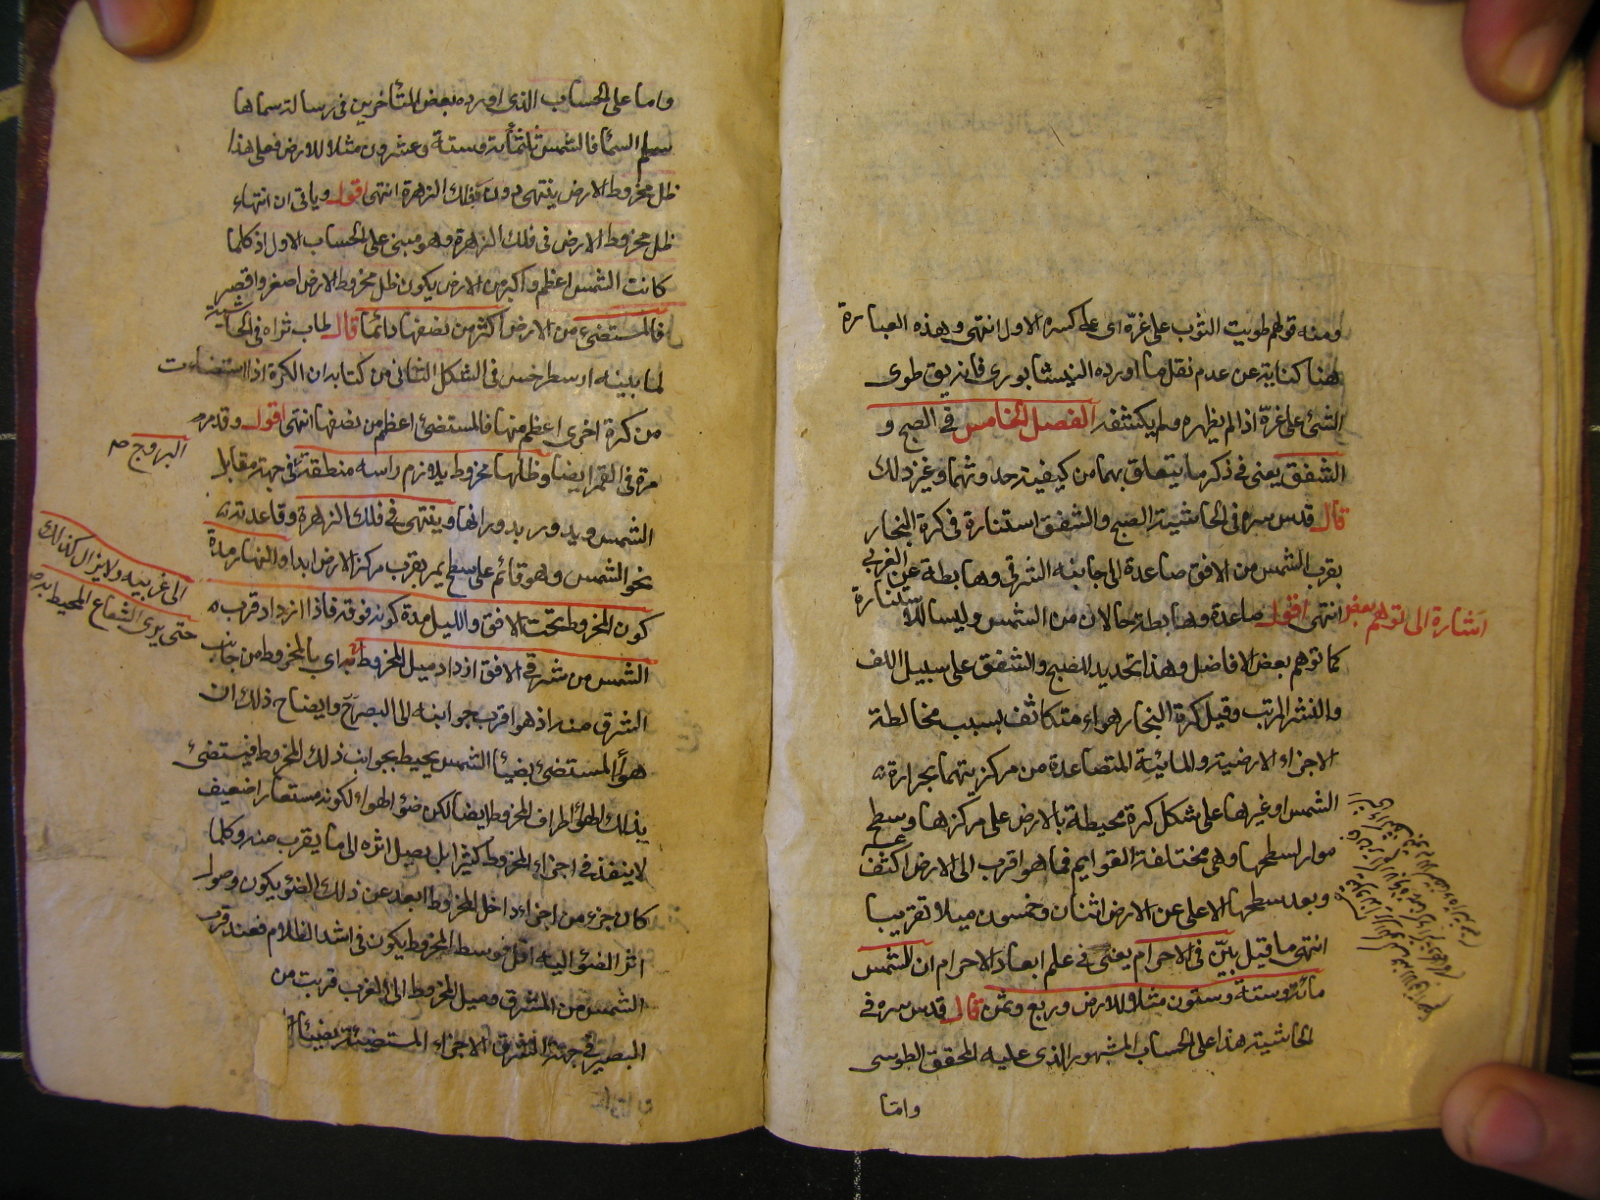 ومنه قولهم طويت الثوب على غرّه اى على كسره الاول انتهى وهذه العبارة
هنا كناية عن عدم نقل ما اورده النيشابورى فانه يق طوى
الشئ على غرّه اذا لم يظهره ولم يكشفه الفصل الخامس فى الصبح و
الشفق يعنى فى ذكر ما يتعلق بهما من كيفية حدوثهما وغير ذلك
قال قدس سره فى الحاشية الصبح والشفق استنارة فى كرة البخار
بقرب الشمس من الافق صاعدة الى جانبه الشرقى وهابطة عن الغربى
انتهى اقول صاعدة وهابطة حالان من الشمس وليسا للاستنارة
اشارة الى توهم بعض
كما توهم بعض الافاضل وهذا تحديد للصبح والشفق على سبيل اللف
والنشر المرتب وقيل كرة البخار هواء متكاثف بسبب مخالطة
الاجزاء الارضية والمائية المتصاعدة من مركزيتهما بحرارة
الشمس او غيرها على شكل كرة محيطة بالارض على مركزها وسطح
مواز لسطحها وهى مختلفة القوايم فما هو اقرب الى الارض اكثف
وبعد سطحها الاعلى عن الارض اثنان وخمسون ميلا تقريبا
انتهى ما قيل بيّن فى الاجرام يعنى فى علم ابعاد الاجرام ان الشمس
مائة وستة وستون مثلا للارض وربع وثمن قال قدس سره فى
الحاشية هذا على الحساب المشهور الذى عليه المحقق الطوسى
واما
واما على الحساب الذى اورده بعض المتأخرين فى رسالة سماها
سلم السما فالشمس ثلثمأية وستة وعشرون مثلا للارض فعلى هذا
ظل مخروط الارض ينتهى دون فلك الزهرة انتهى اقول وياتى ان انتهاء
ظل مخروط الارض فى فلك الزهرة وهو مبنى على الحساب الاول اذ كلما
كانت الشمس اعظم واكبر من الارض يكون ظل مخروط الارض اصغر واقصر
فالمستضئ من الارض اكثر من نصفها دائما قال طاب ثراه فى الحاشية
لما بينه ارسطرخس فى الشكل الثانى من كتابه ان الكرة اذا استضاءت
من كرة اخرى اعظم منها فالمستضئ اعظم من نصفها انتهى اقول وقد مر
مرة فى القمر ايضا وظلها مخروط يلازم راسه منطقة فى جهة مقابل
البروج صح
الشمس ويدور بدورانها وينتهى فى فلك الزهرة وقاعدته
نحو الشمس وهو قائم على سطح يمر بقرب مركز الارض ابدا والنهار مدة
كون المخروط تحت الافق والليل مدة كونه فوقه فاذا ازداد قرب
الى غربيه ولا يزال كذلك
حتى يرى الشعاع المحيط به صح
الشمس من شرقى الافق ازداد ميل المخروط به اى بالمخروط من جانب
الشرق منه اذ هو اقرب جوابنه الى البصر وايضاح ذلك ان
هوأ المستضئ بضيأ الشمس يحيط بجوانب ذلك المخروط فيستضئ
بذلك الهوأ اطراف المخروط ايضا لكن ضؤ الهواء لكونه مستعارا ضعيف
لا ينفذ فى اجزاء المخروط كثيرا بل يصل اثره الى ما يقرب منه وكلما
كان جزء من اجزاء داخل المخروط ابعد عن ذلك الضؤ يكون وصول
اثر الضؤ اليه اقل فوسط المخروط يكون فى اشد الظلام فعند قرب
الشمس من المشرق وميل المخروط الى المغرب قربت من
البصر فى جهة المشرق الاجزاء المستضيئة بضيأ